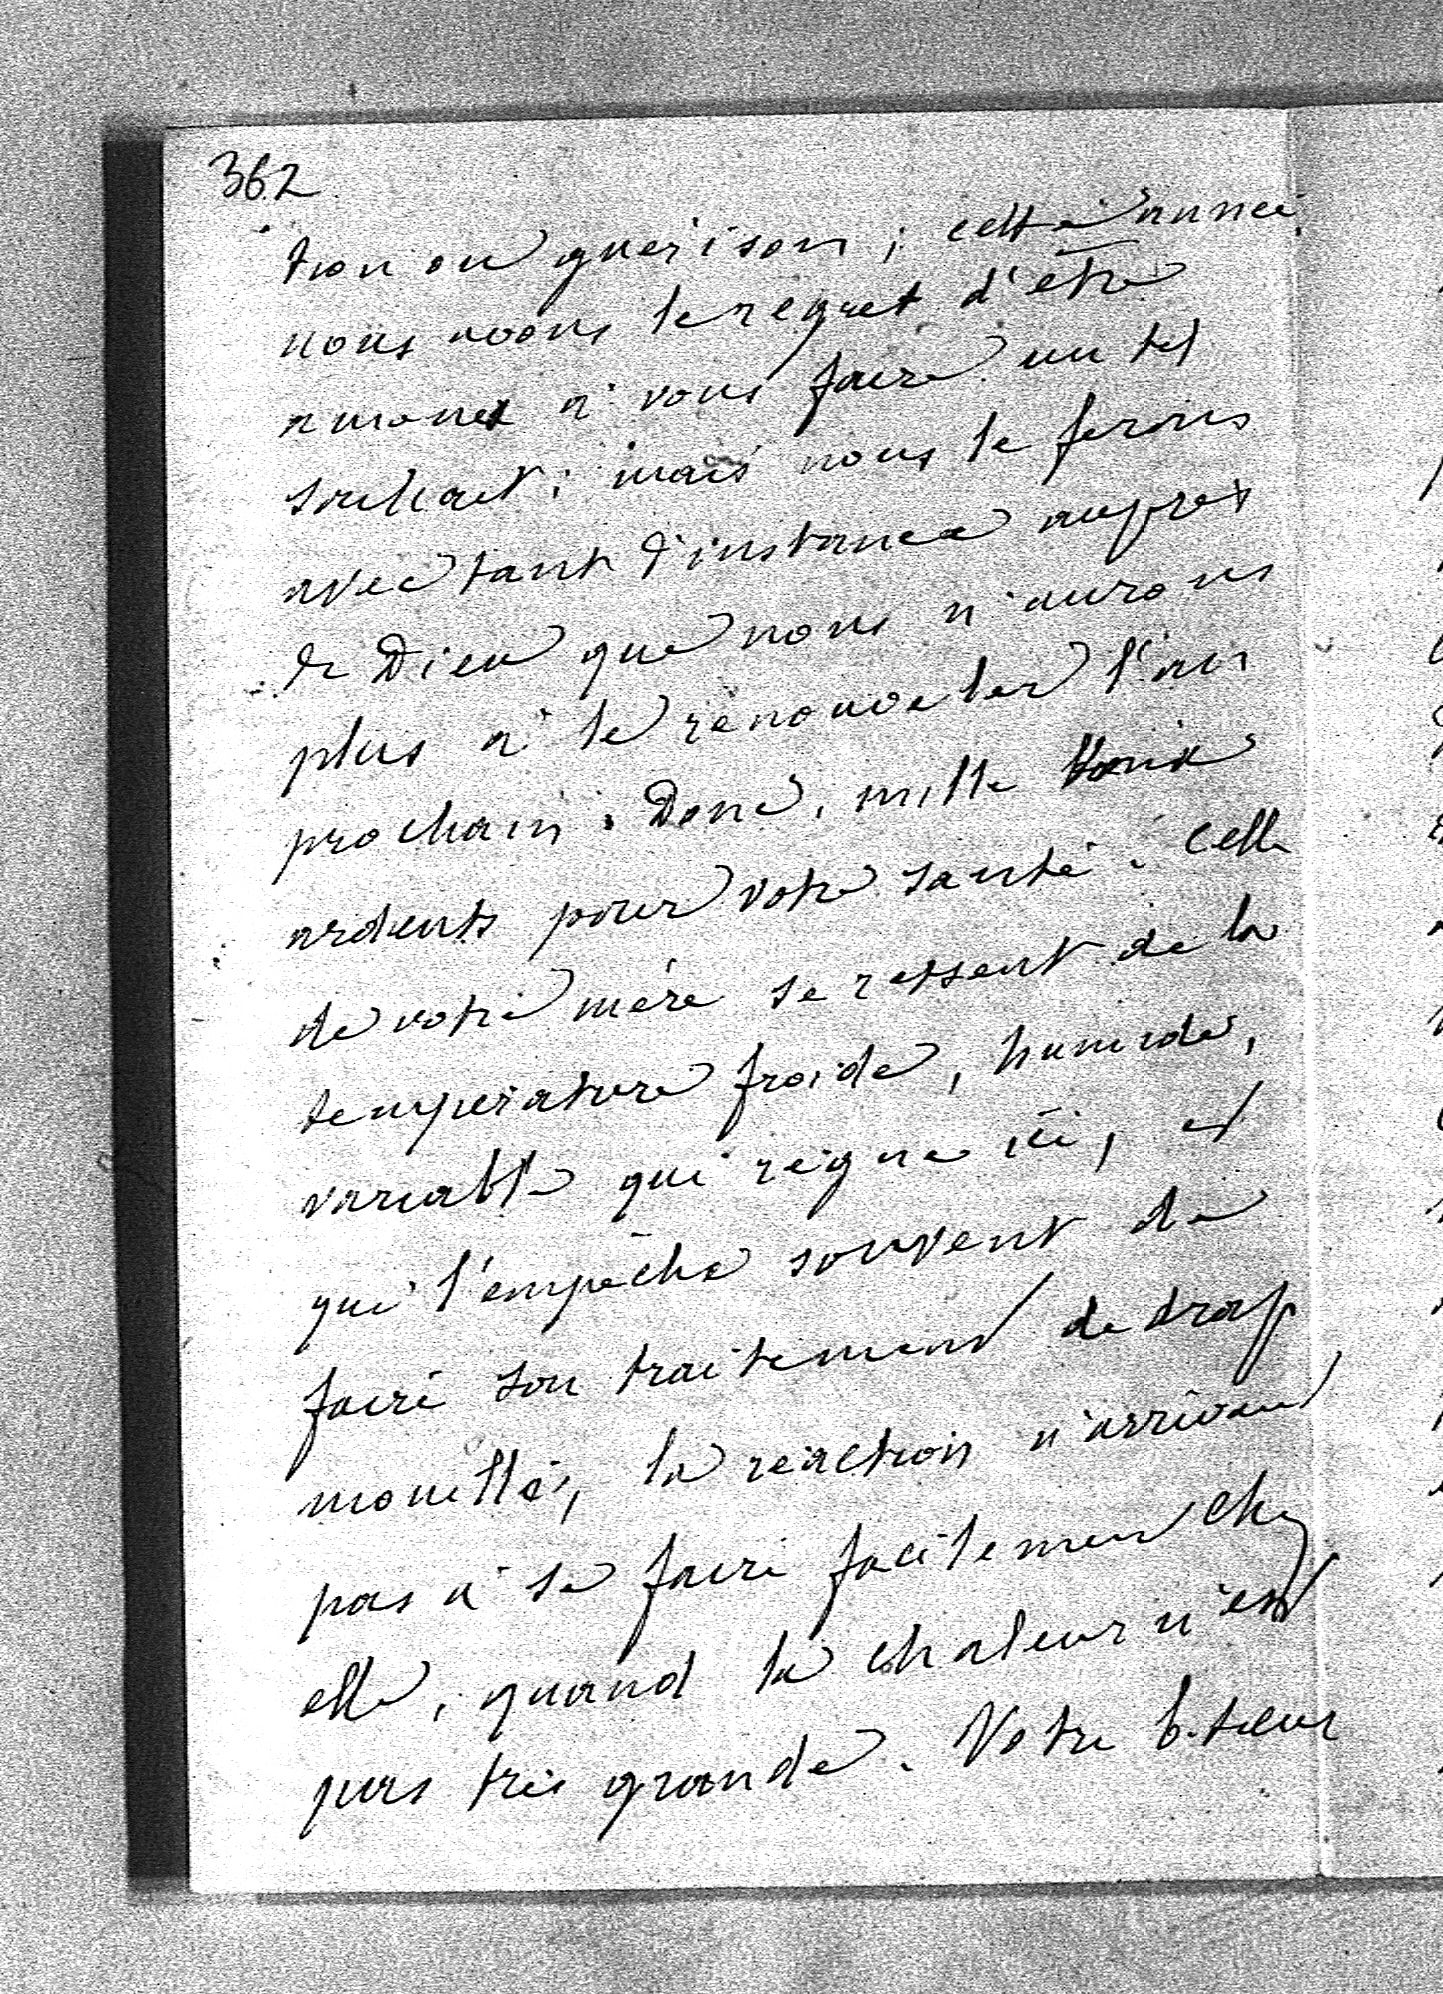 362
tion ou guérison ; cette année
nous avons le regret d'être
amenés à vous faire un tel
souhait ; mais nous le ferons
avec tant d'instance auprès
de Dieu que nous n'aurons
plus à le renouveler l'an
prochain. Donc, mille vœux
ardents pour votre santé. Celle
de votre mère se ressent de la
température froide, humide,
variable qui règne ici, et
qui l'empêche souvent de
faire son traitement de drap
mouillé, la réaction n'arrivant
pas à se faire facilement chez
elle, quand la chaleur n'est
pas très grande. Votre b. sœur